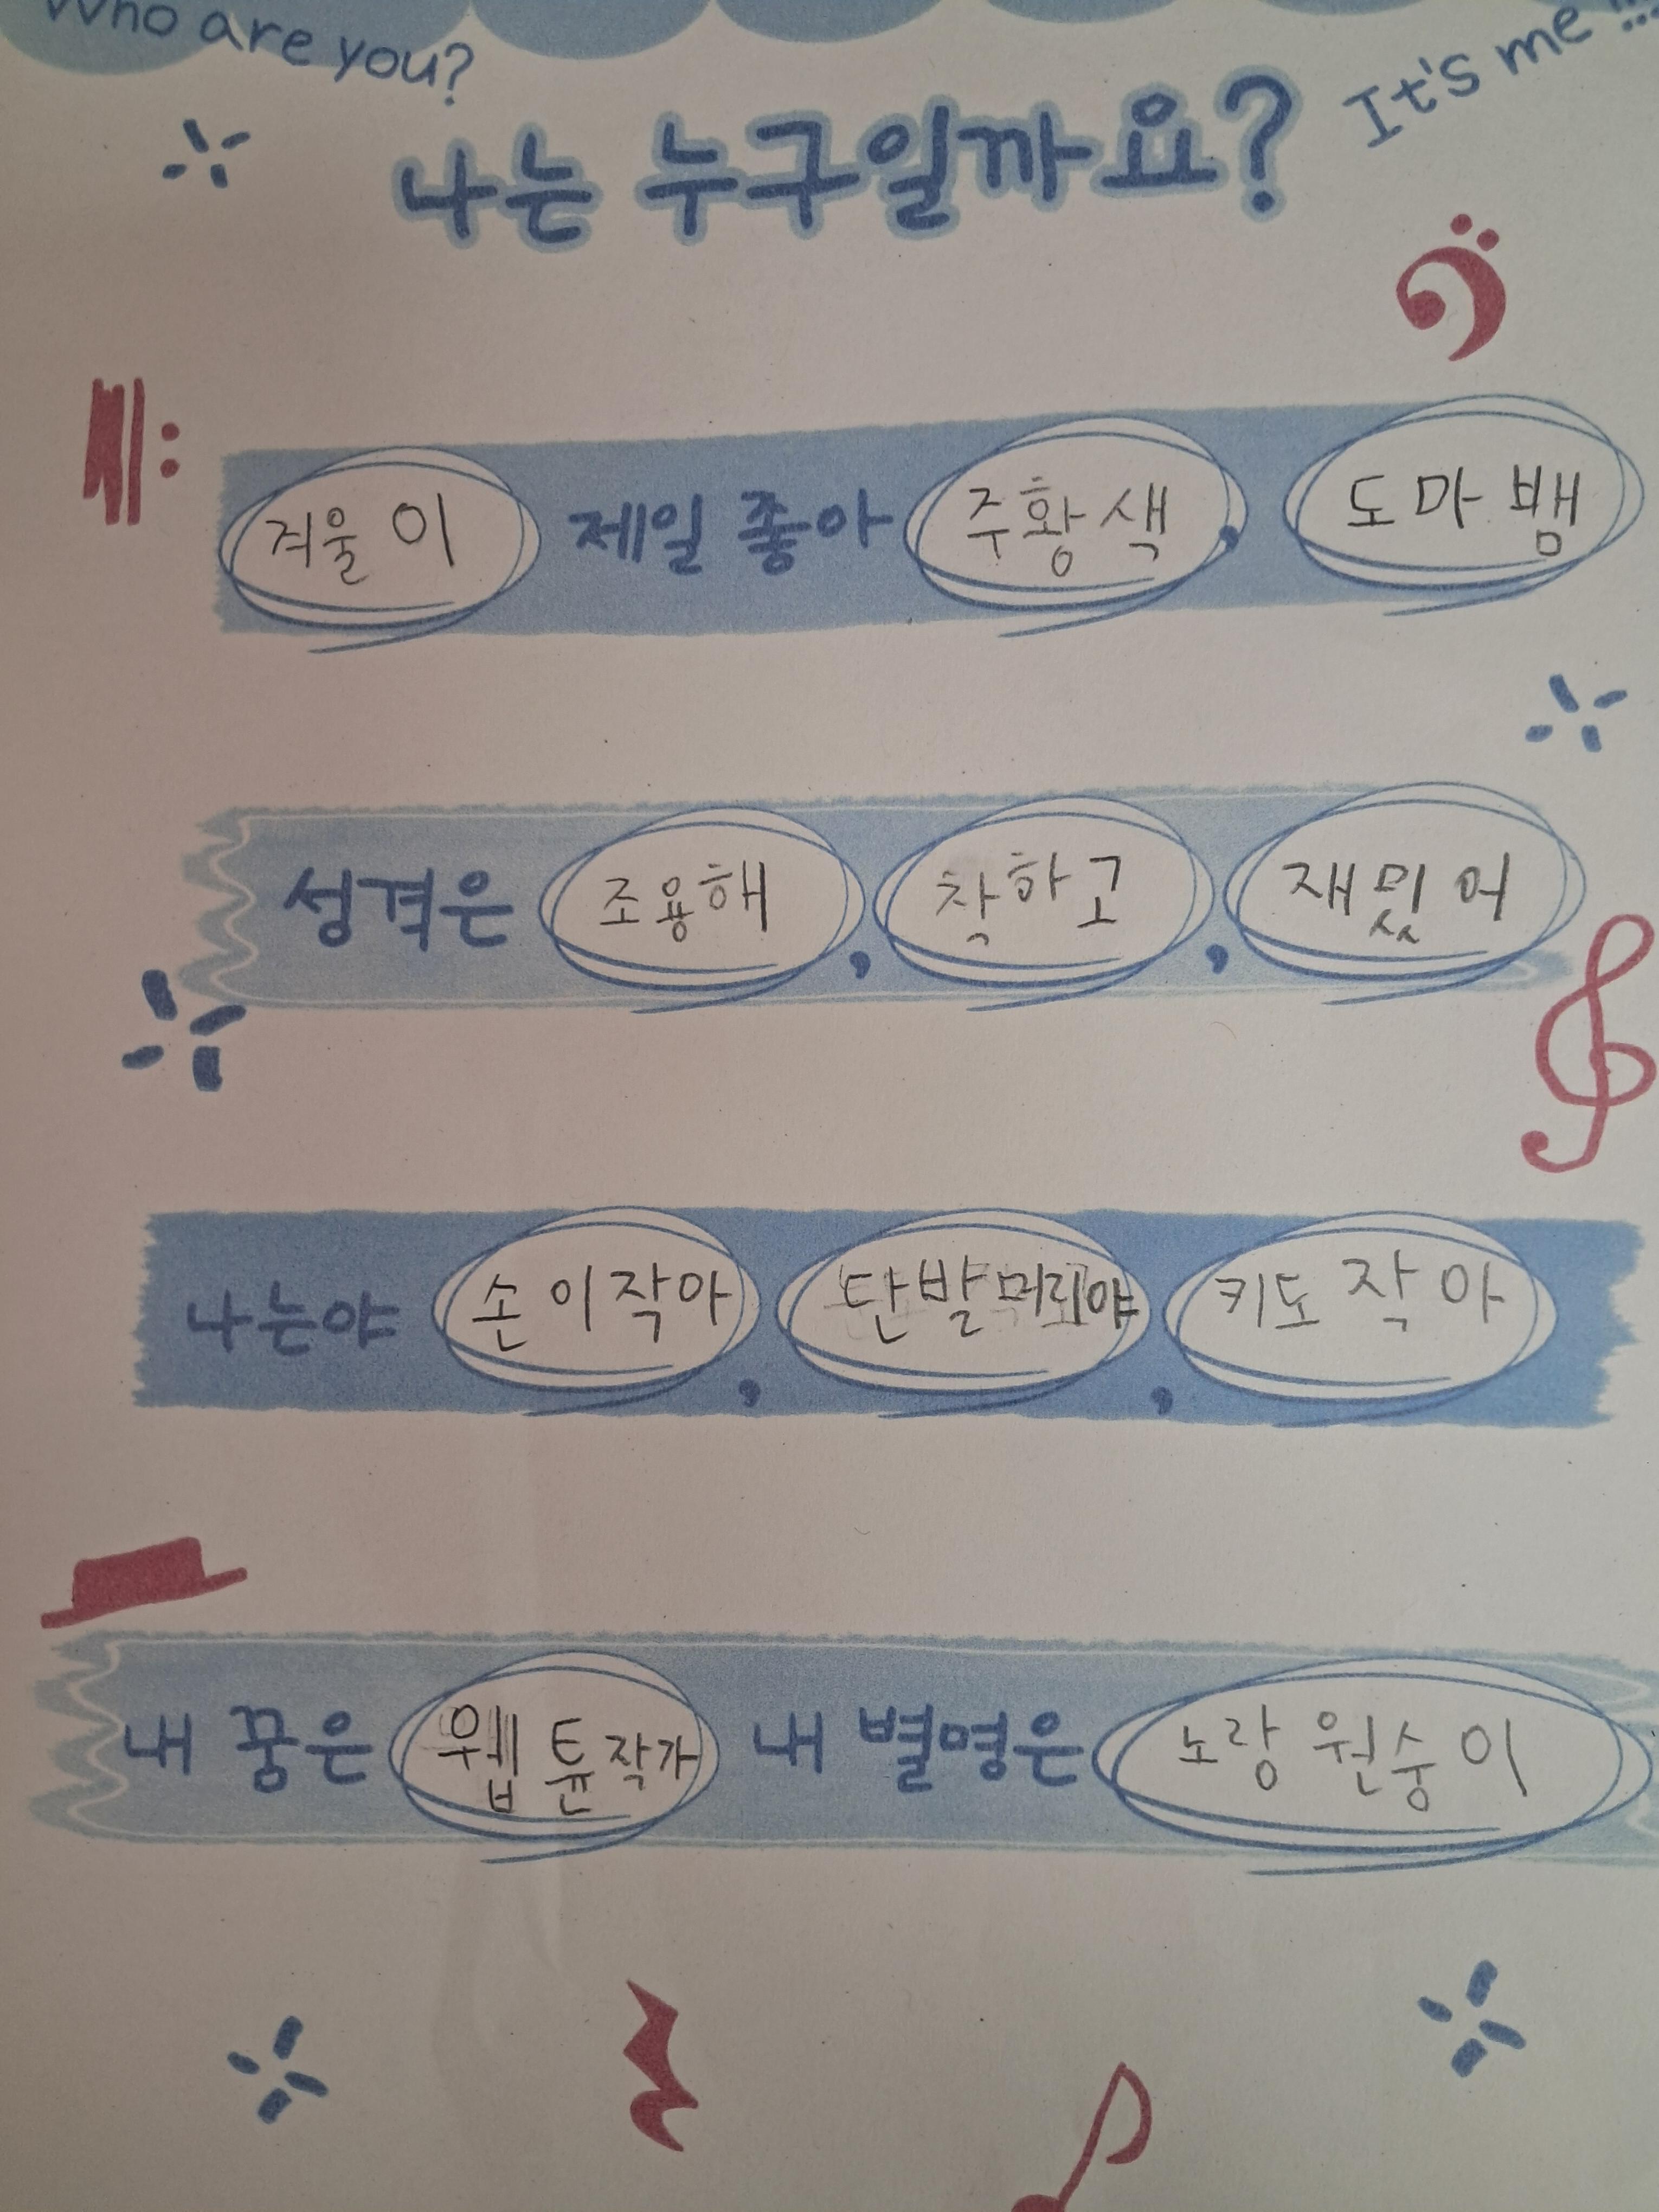 Who are you?
It's me !!!
나는 누구일까요?
겨울이 제일 좋아 주황색, 도마뱀
성격은 조용해, 착하고, 재밌어
나는야 손이작아, 단발머리야, 키도작아
내 꿈은 웹튠작가 내 별명은 노랑원숭이